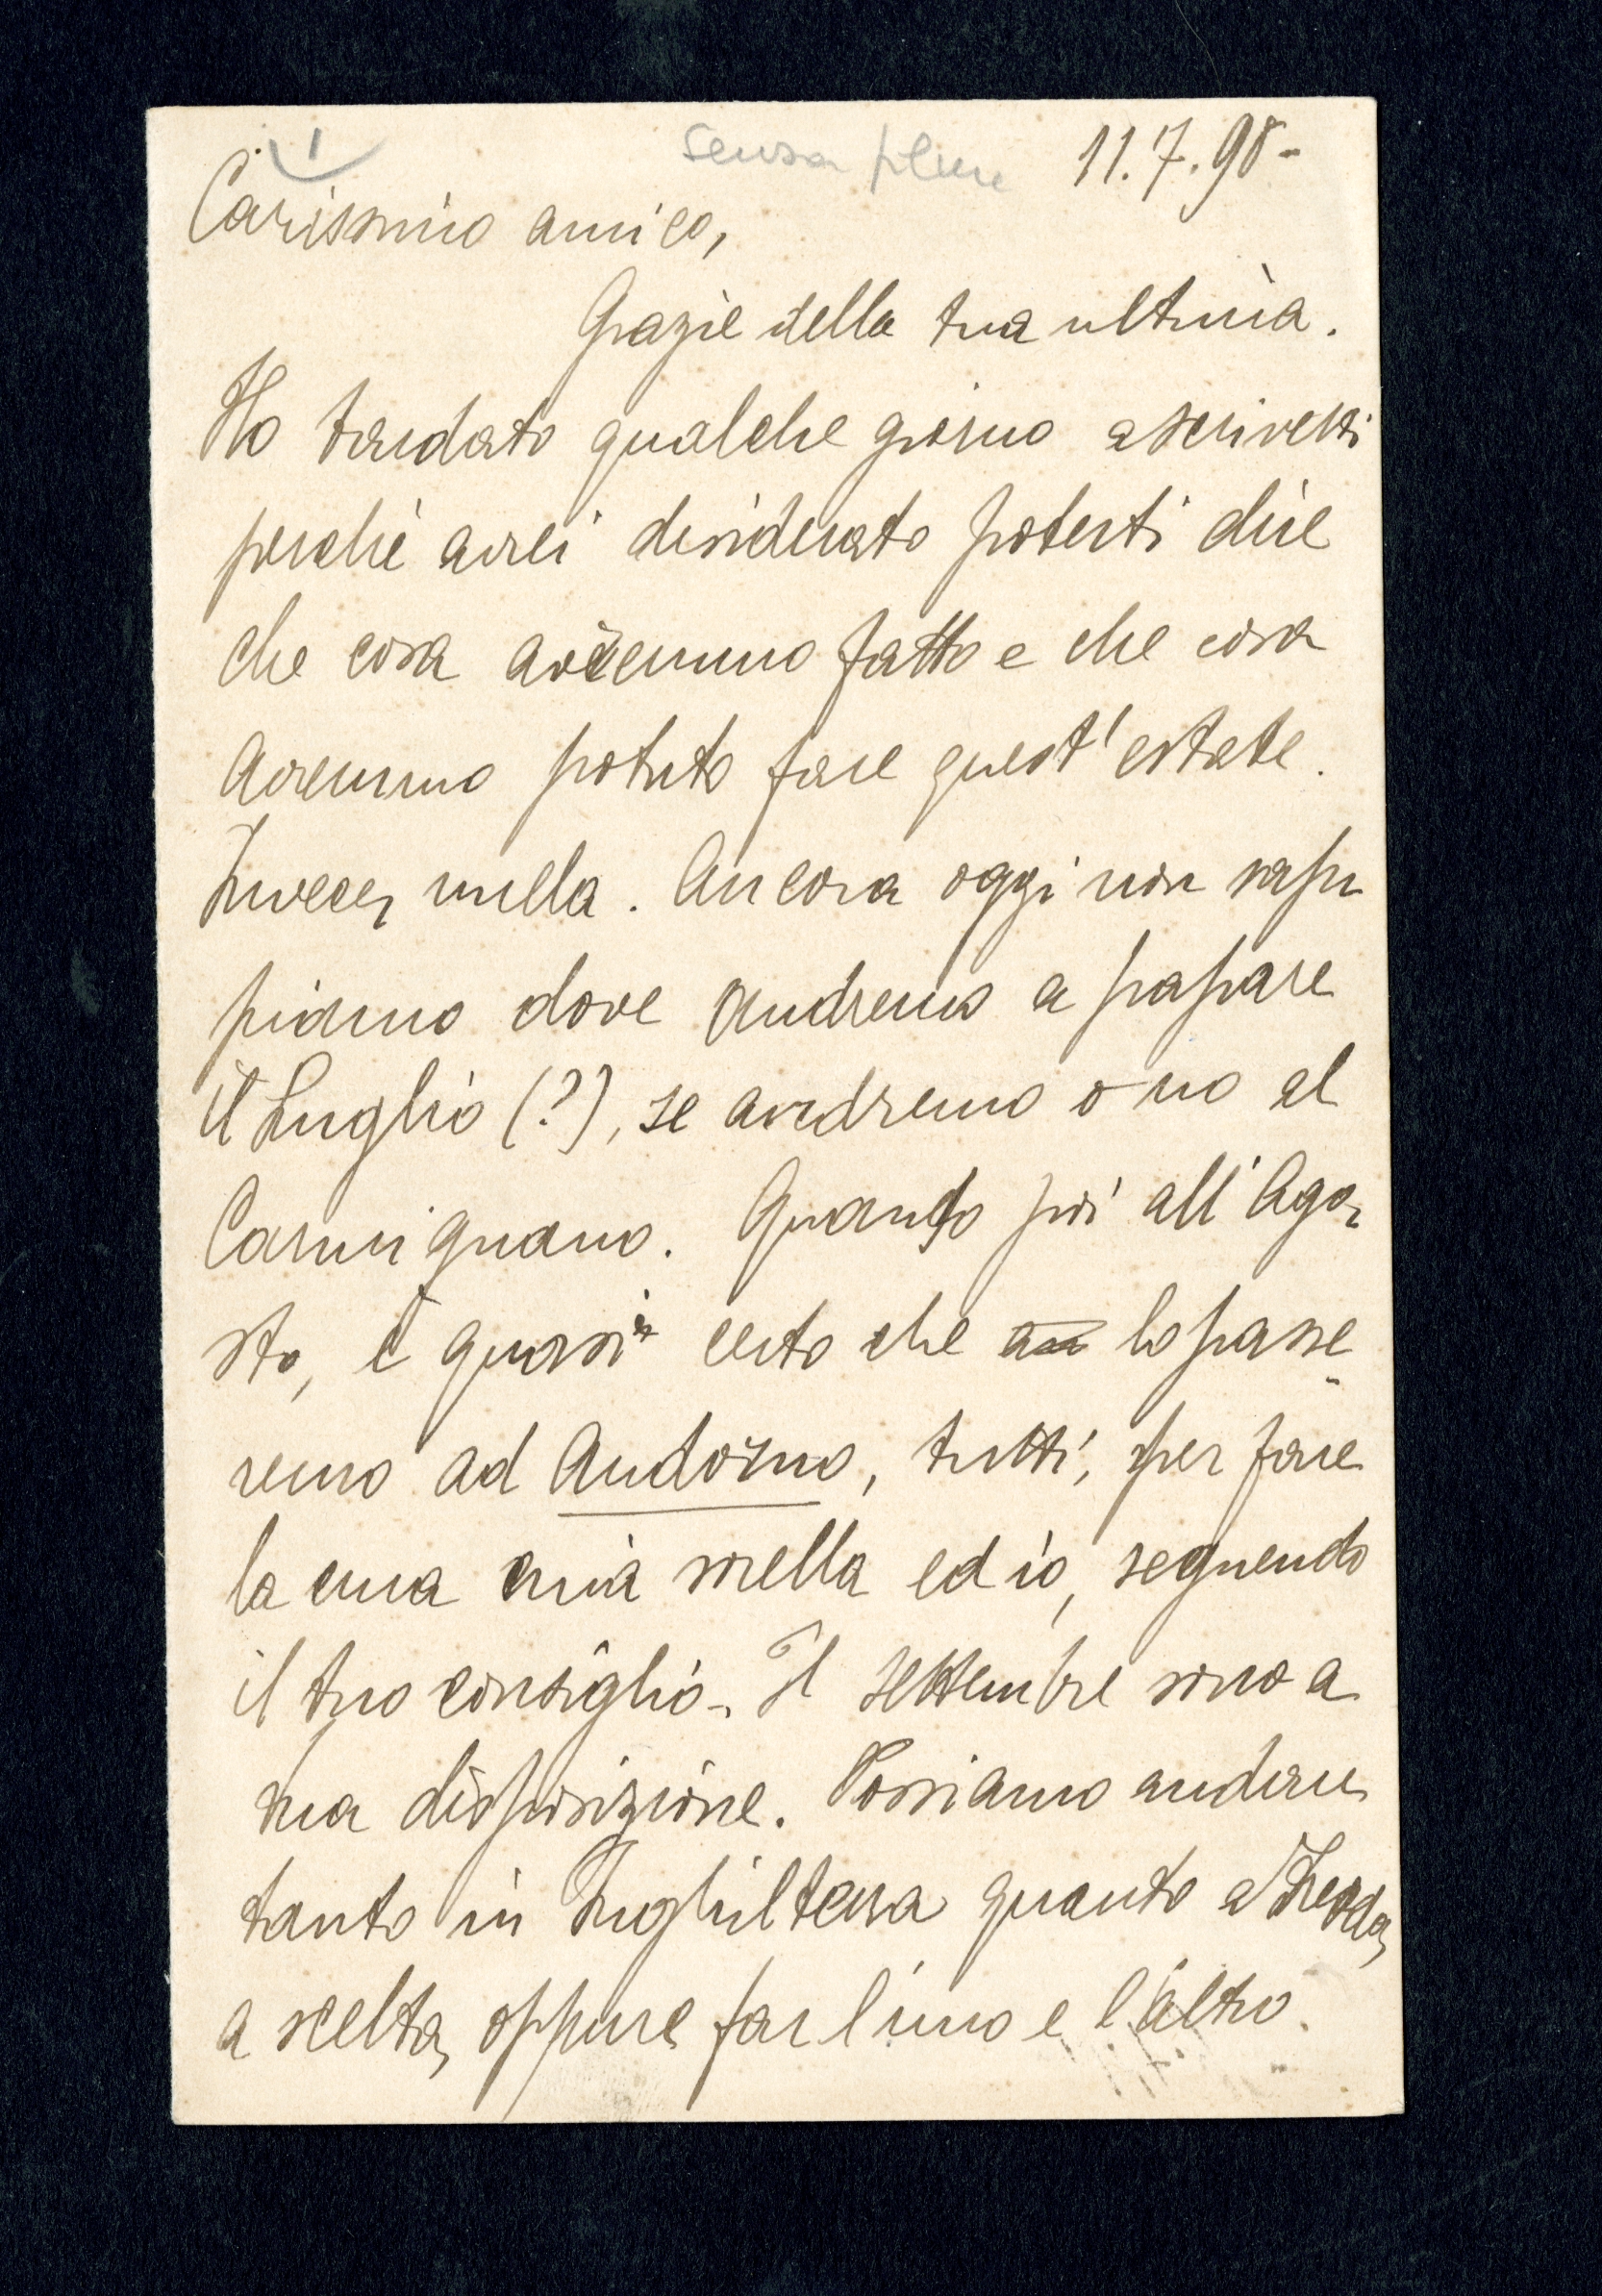 1
senza 11.7.98-
Carissimo amico,
Grazie della tua ultima.
Ho tardato qualche giorno a scriverti
perchè avrei desiderato poterti dire
che cosa avremmo fatto e che cosa
avremmo potuto fare quest'estate.
Invece, nulla. Ancora oggi non sap-
piamo dove andremo a passare
il Luglio (?), se andremo o no al
Carmignano. Quando poi all'Ago-
sto, è quasi certo che lo passe-
remo ad Andorno, tutti, per fare
la cura mia sorella ed io, seguendo
il tuo consiglio. Il settembre sono a
tua disposizione. Possiamo andare
tanto in Inghilterra quanto a
a scelta, oppure far l'uno e l'altro.